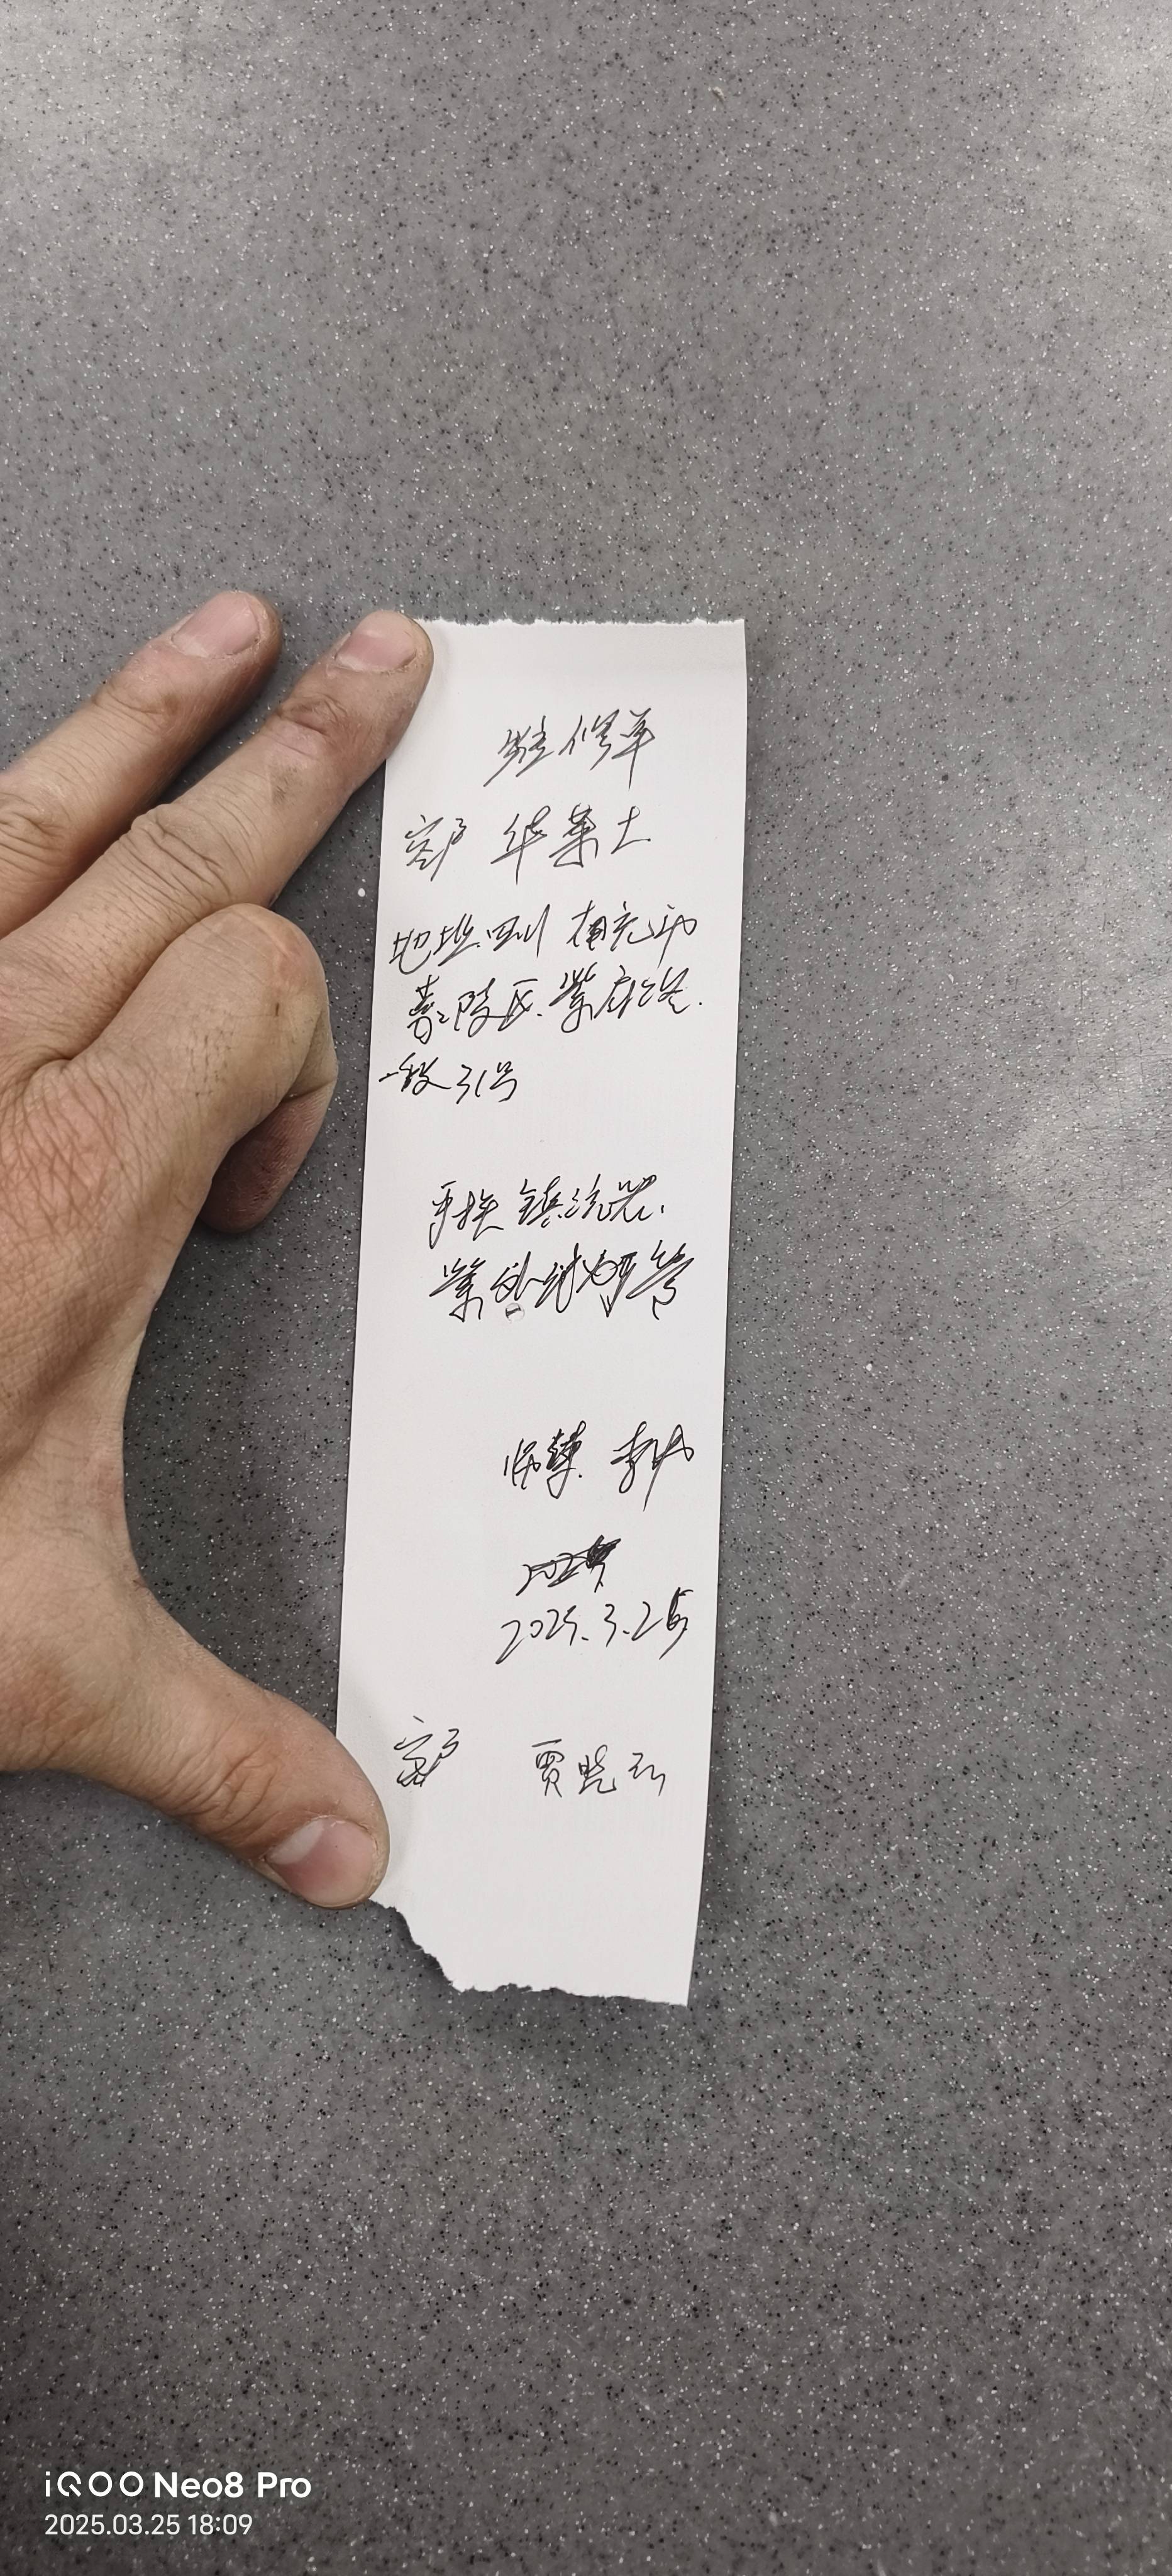 维修单
客户 华莱士
地址:四川 南充市
嘉陵区.紫府路.
一段31号
更换 镇流器.
紫外线灯管
2025.3.25
客户 贾晓
iQOO Neo8 Pro
2025.03.25 18:09